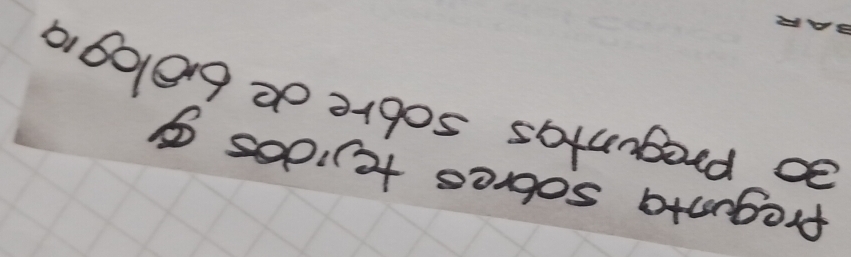 Pregunta sobres tejidos
30 preguntas sobre de biología
BAR